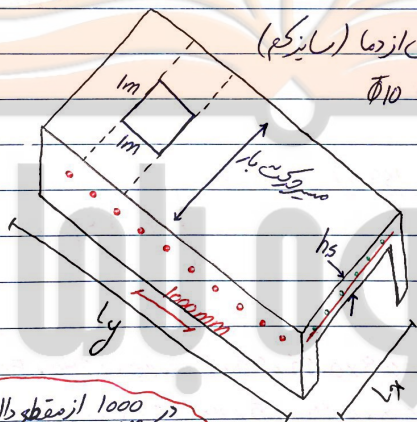 از دما (سایزکم)
Φ10
1m
1m
مسیر حرکت بار
hs
1000mm
Ly
Lx
در 1000 از مقطع دال